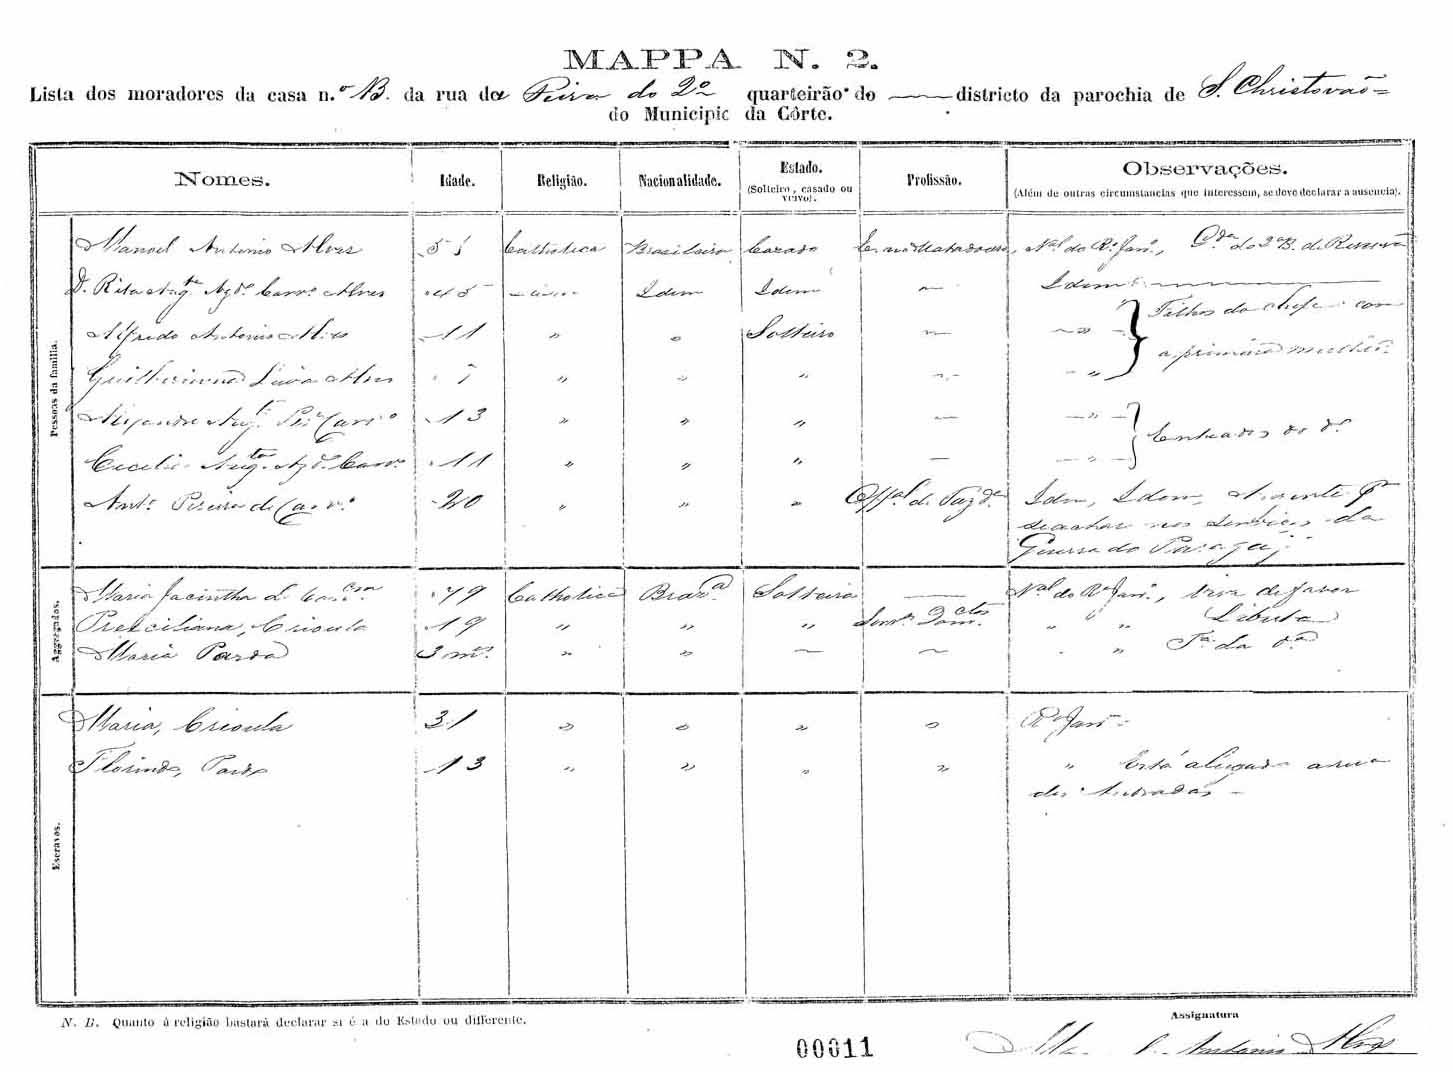 MAPPA N. 2.
Lista dos moradores da casa n.º B. da rua da Feira do 2º quarteirão do — districto da parochia de S. Christovão
do Municipio da Côrte.
Nomes. Idade. Religião. Nacionalidade. Estado. (Solteiro, casado ou viuvo). Profissão. Observações. (Além de outras circumstancias que interessem, se deve declarar a ausencia).
Pessoas da familia.
Manoel Antonio Alves 51 Catholica Brasileira Cazado E. no Matadouro, Nal do Rº Janº, Gda do 2º B. de Reserva
D. Rita Augta Azdo Carvº Alves 45 Idem Idem — Idem
Alfredo Antonio Alves 11 " " Solteiro — " } Filhos do chefe com
a primeira mulher
Guilhermina Alves " " " — "
13 " " " — " } Enteados do dº
Cecilia Augta Azdo Carvº 11 " " " — "
Antº Pereira de Carvº 20 " " " Offal de Idem, Idem, Auzente pr
se achar nos serviços da
Guerra do Paraguay
Aggregados.
Maria Jacintha 79 Catholica Braza Solteira — Nal do Rº Janº, vive de favor
Presciliana, Crioula 19 " " " Servos Domcos " " " Liberta
Maria Parda 3 ms " " — — " " Fa da da
Escravos.
Maria, Crioula 31 " " " " Rº Janº
Florinda, Parda 13 " " " " " Está alugada a rua
dos Andradas
N. B. Quanto á religião bastará declarar si é a do Estado ou differente.
Assignatura
00011
Manoel Antonio Alves